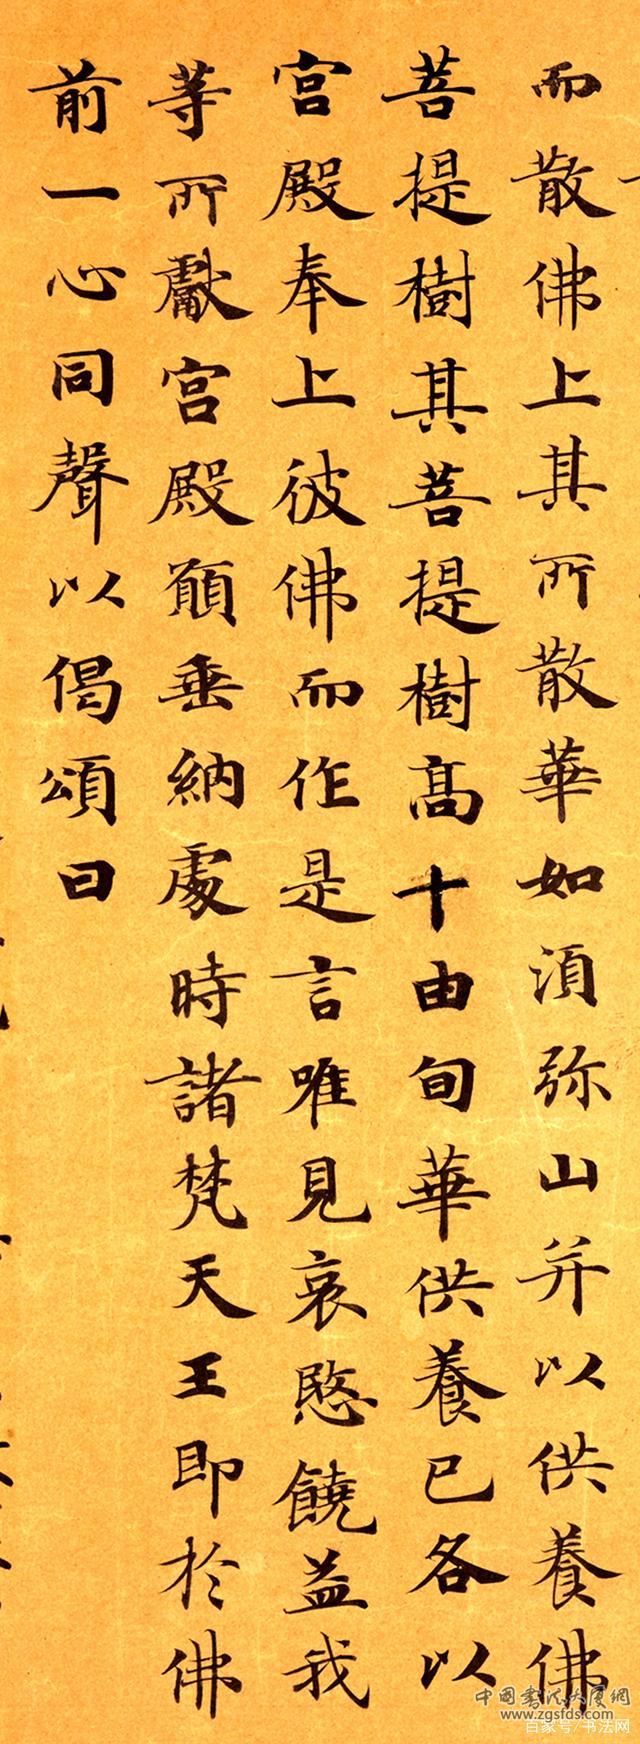 而散佛上其所散華如須弥山并以供養佛
菩提樹其菩提樹高十由旬華供養已各以
宮殿奉上彼佛而作是言唯見哀愍饒益我
等所獻宮殿願垂納處時諸梵天王即於佛
前一心同聲以偈頌曰
中國書法大廈網
www.zgsfds.com
百家号/书法网